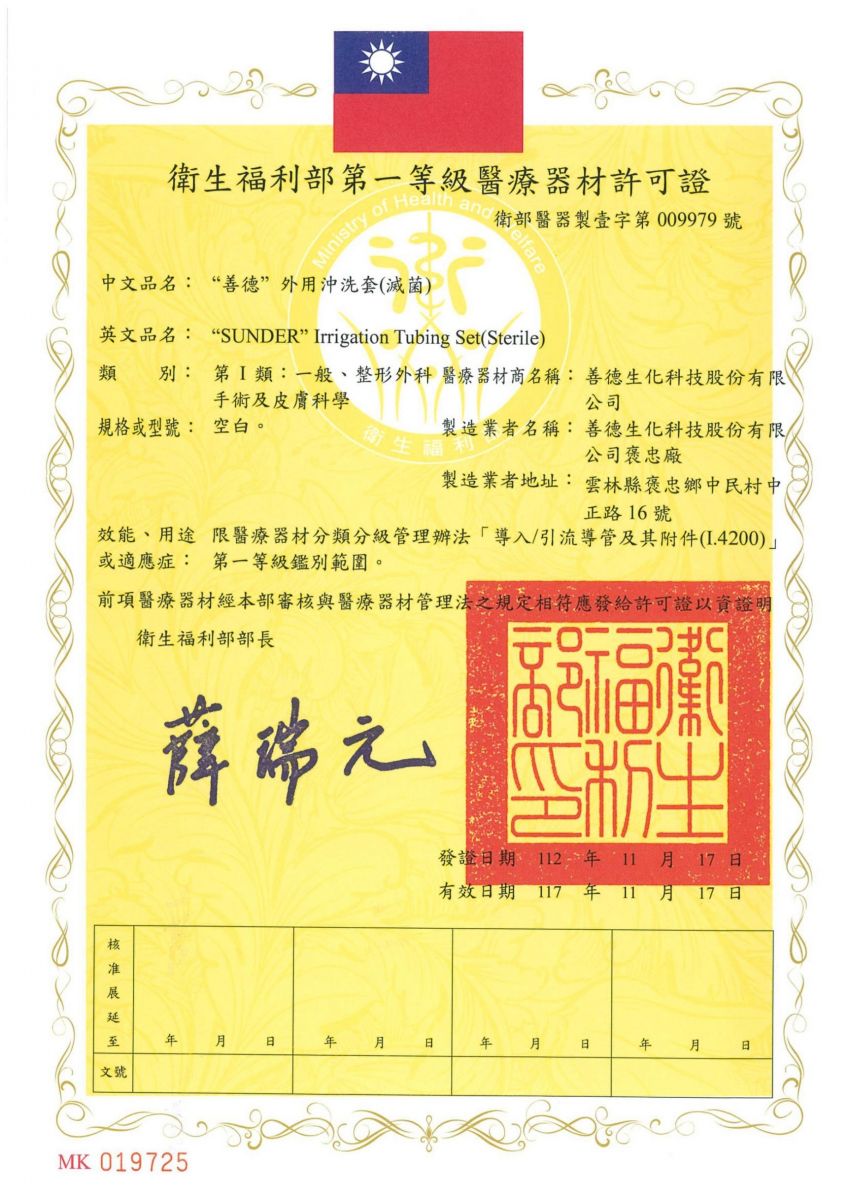 衛生福利部第一等級醫療器材許可證
衛部醫器製壹字第 009979 號
Ministry of Health and Welfare
中文品名： “善德” 外用沖洗套(滅菌)
英文品名： “SUNDER” Irrigation Tubing Set(Sterile)
類 別： 第 I 類：一般、整形外科手術及皮膚科學
醫療器材商名稱： 善德生化科技股份有限公司
規格或型號： 空白。
製造業者名稱： 善德生化科技股份有限公司褒忠廠
衛生福利
製造業者地址： 雲林縣褒忠鄉中民村中正路 16 號
效能、用途 限醫療器材分類分級管理辦法「導入/引流導管及其附件(I.4200)」
或適應症： 第一等級鑑別範圍。
前項醫療器材經本部審核與醫療器材管理法之規定相符應發給許可證以資證明
衛生福利部部長
薛瑞元
衛生福利部印
發證日期 112 年 11 月 17 日
有效日期 117 年 11 月 17 日
核准展延至
年 月 日 年 月 日 年 月 日 年 月 日
文號
MK 019725